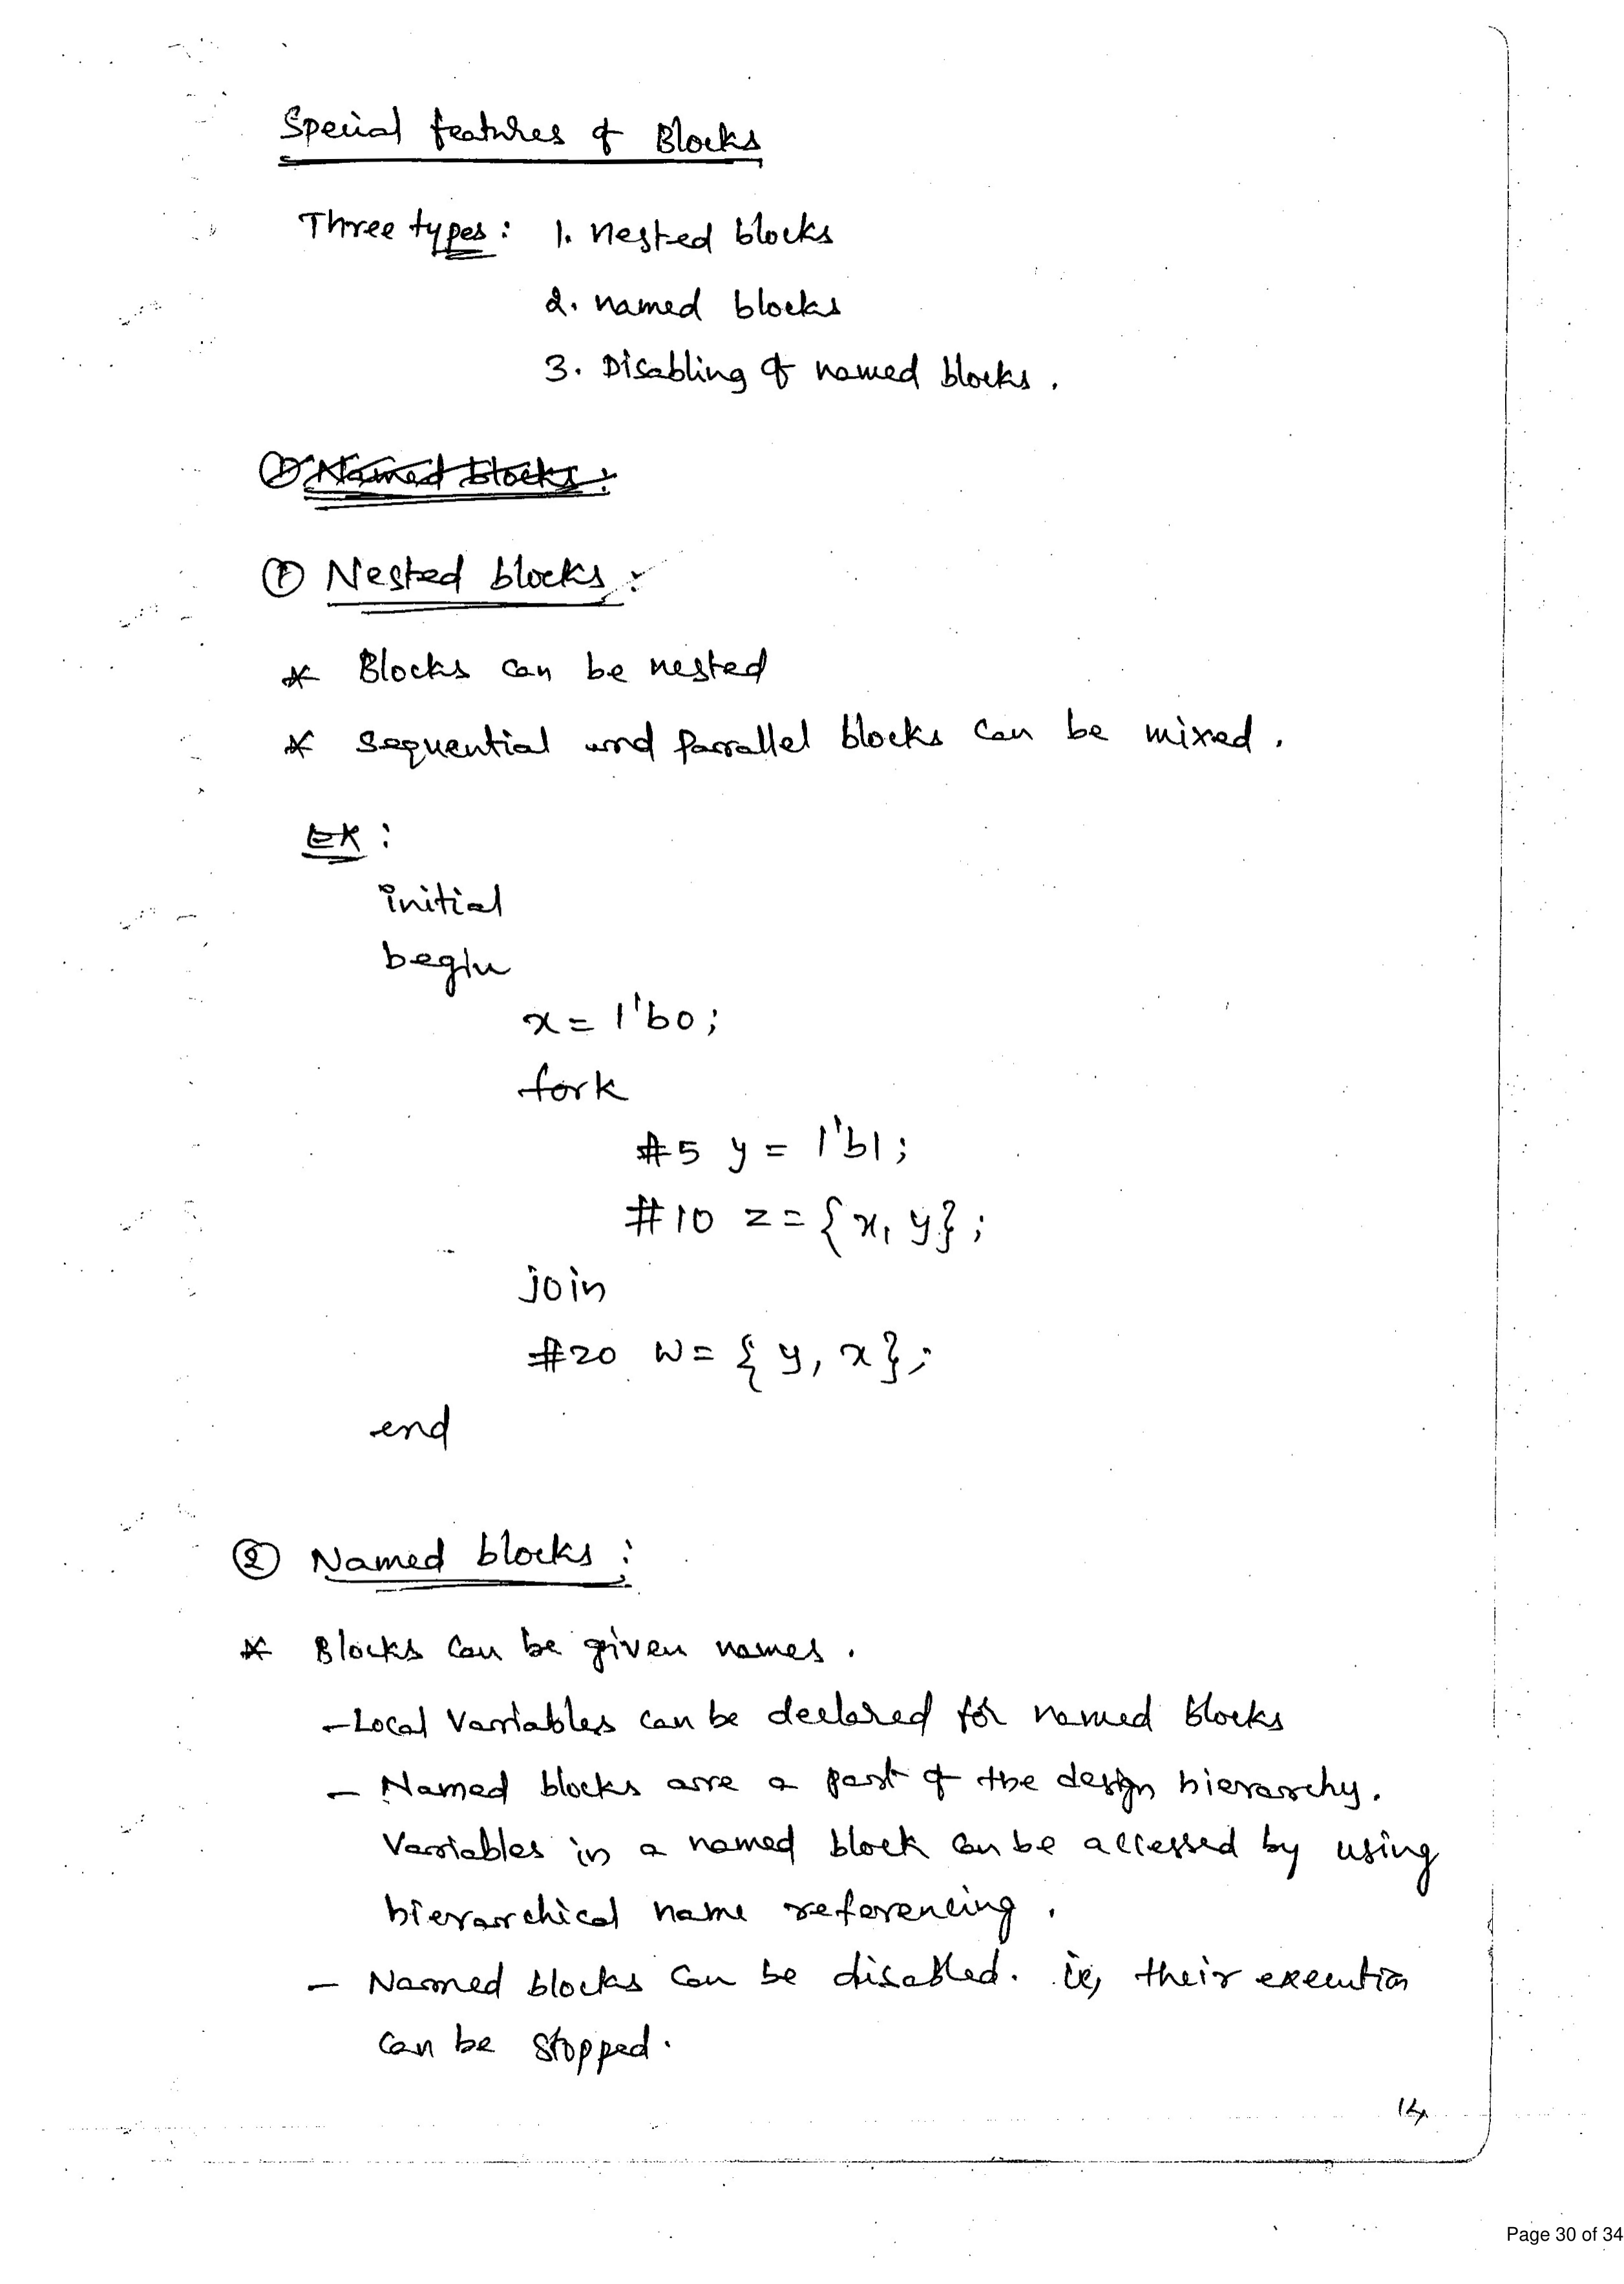 Special features of Blocks
Three types: 1. nested blocks
2. named blocks
3. Disabling of named blocks.
① Named blocks:
① Nested blocks:
* Blocks can be nested
* Sequential and parallel blocks can be mixed.
Ex:
initial
begin
x = 1'b0;
fork
#5 y = 1'b1;
#10 z = {x, y};
join
#20 w = {y, x};
end
② Named blocks:
* Blocks can be given names.
- Local variables can be declared for named blocks
- Named blocks are a part of the design hierarchy.
Variables in a named block can be accessed by using
hierarchical name referencing.
- Named blocks can be disabled. ie, their execution
can be stopped.
14
Page 30 of 34